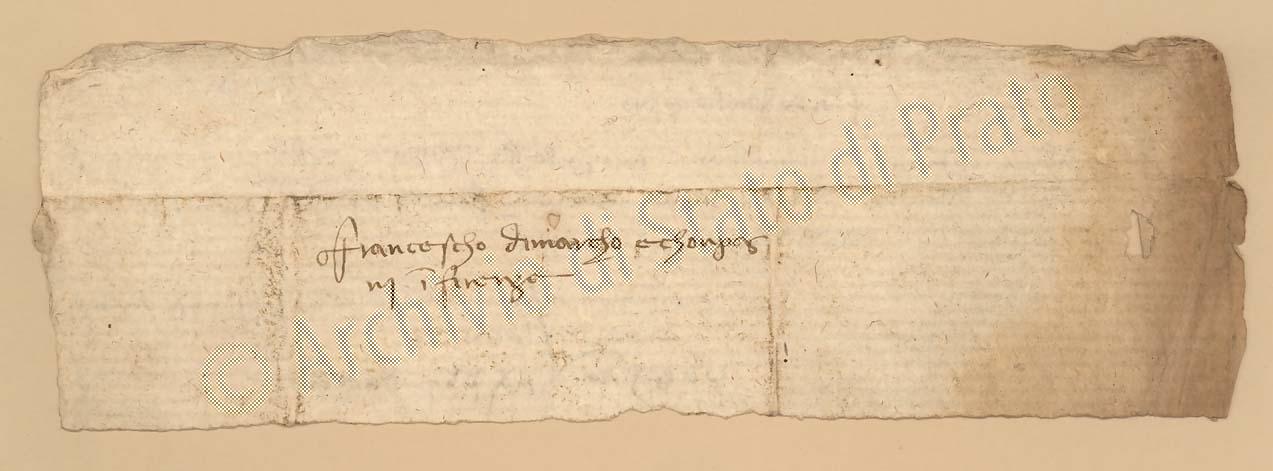 Francescho dimarcho e chonpag
nj ĩ firenze
© Archivio di Stato di Prato